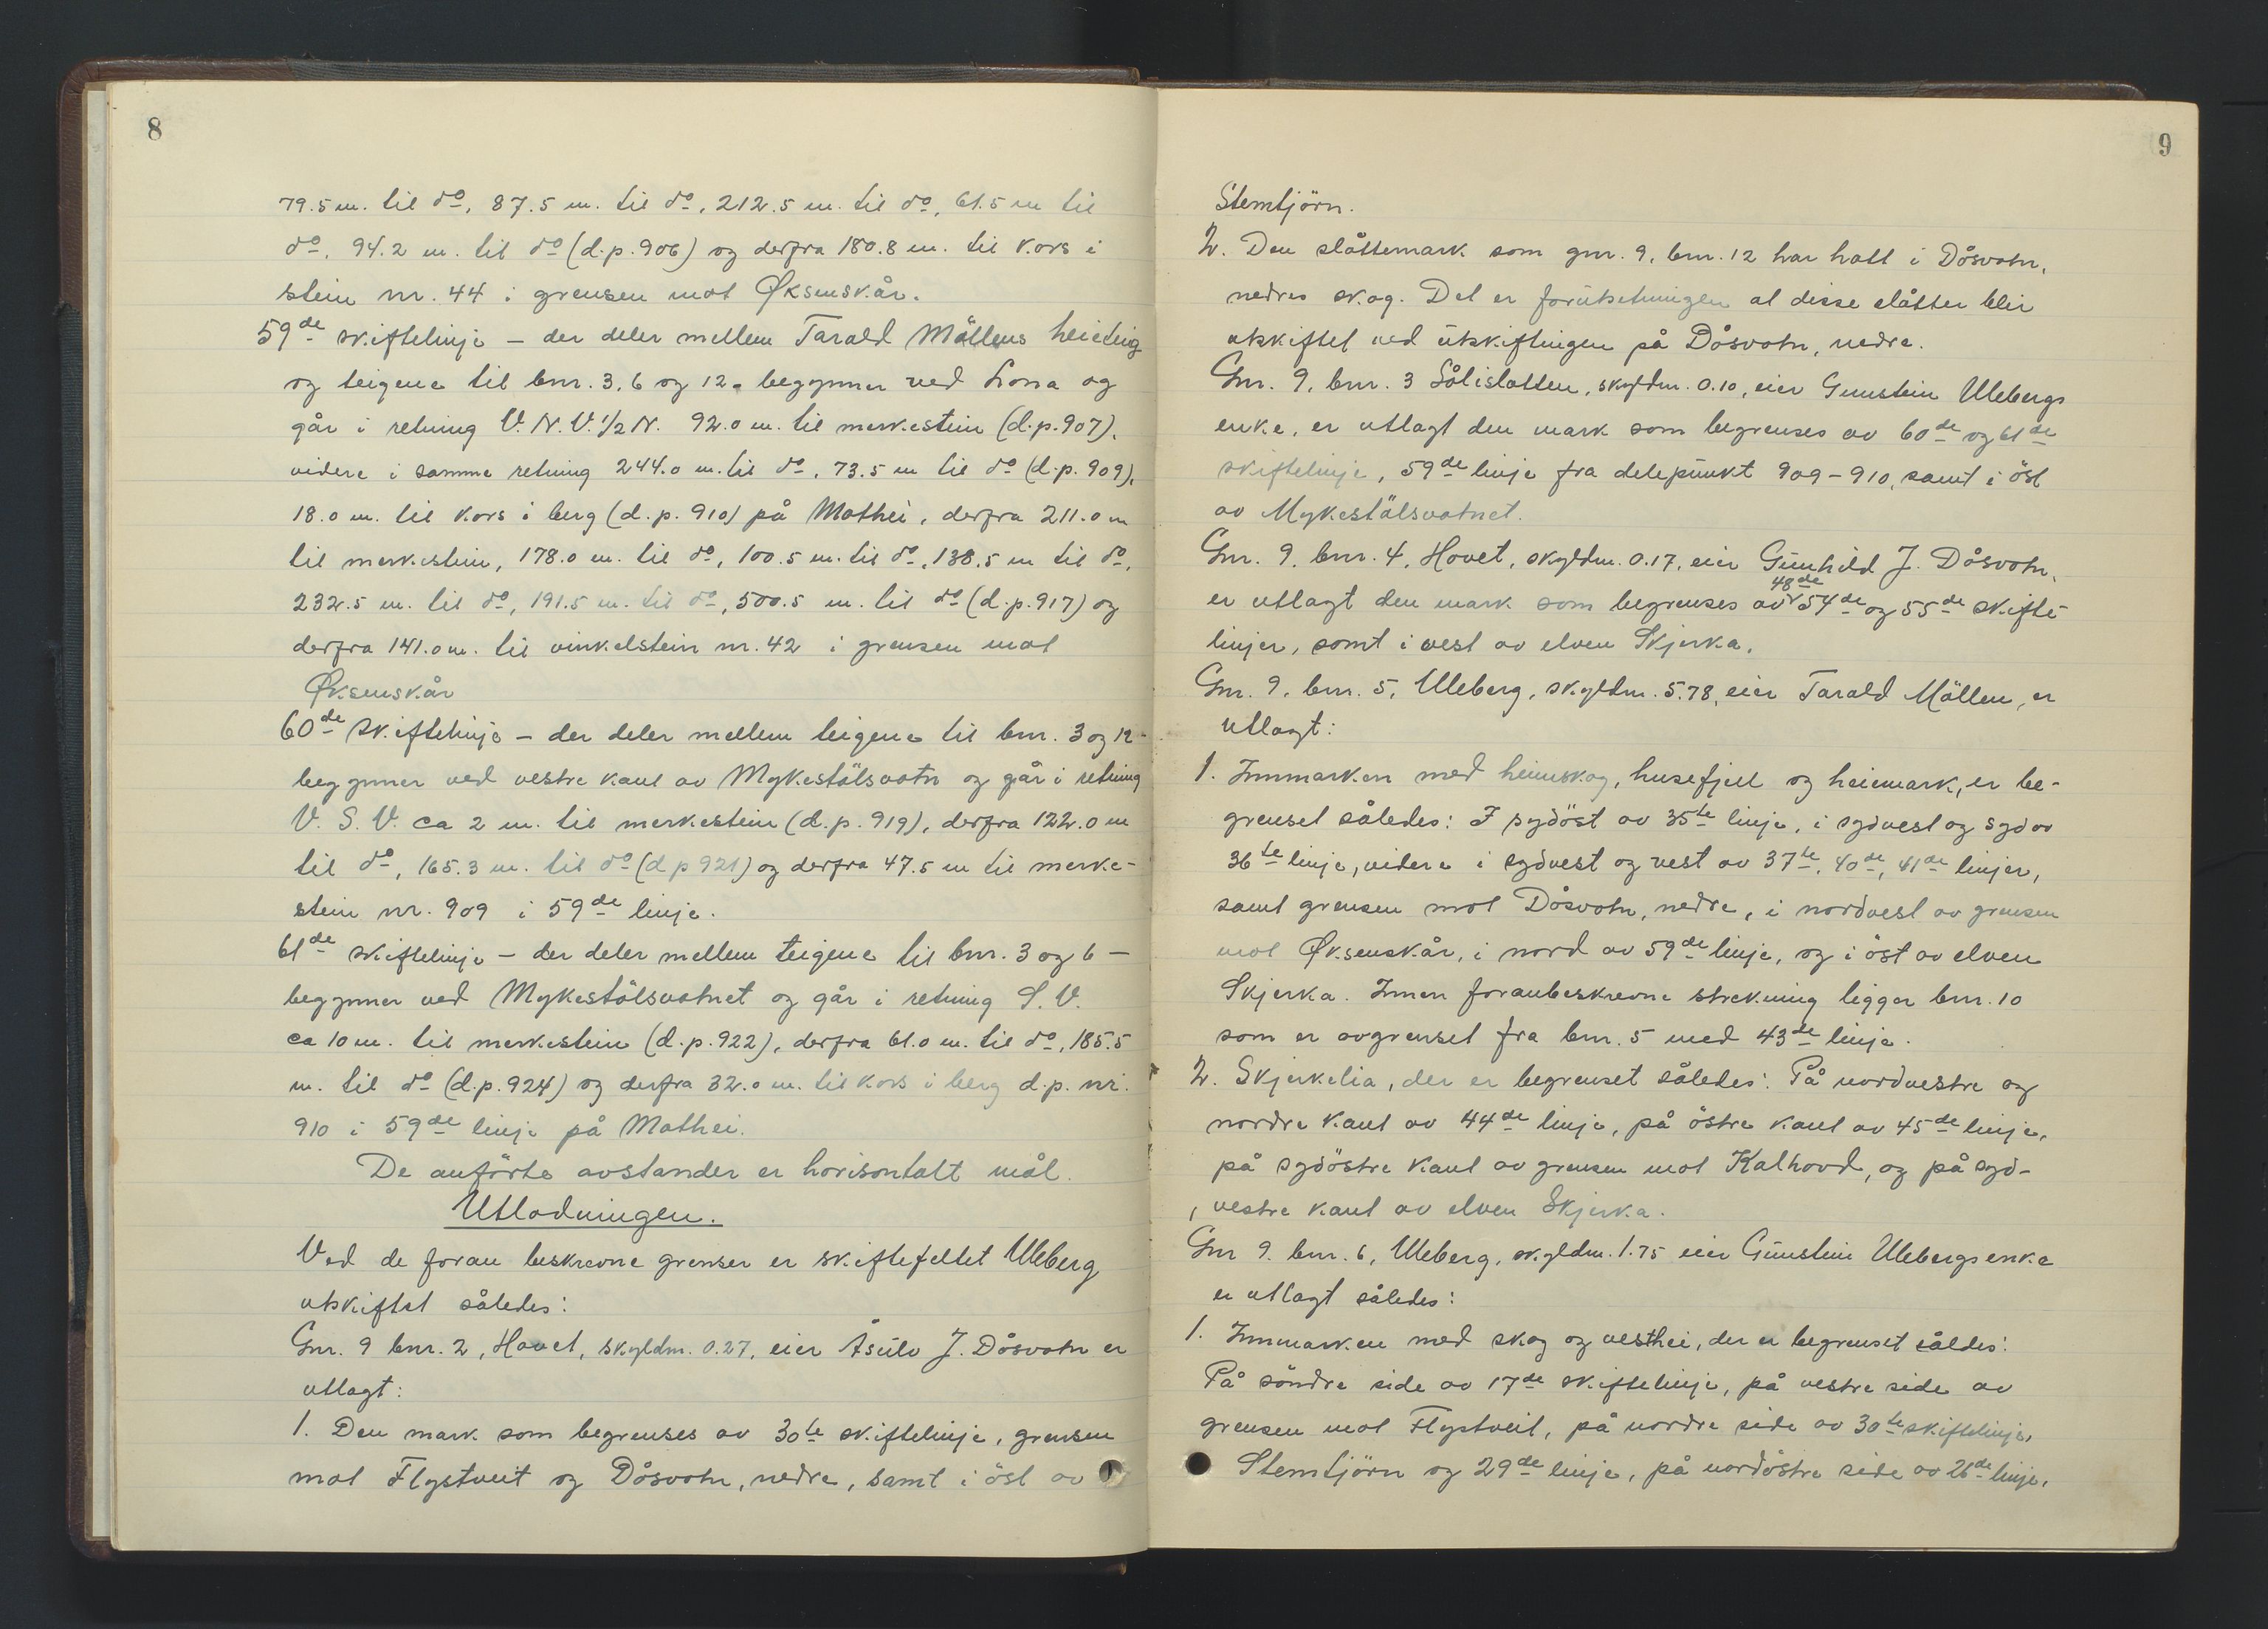 8
79.5 m. til do, 87.5 m. til do, 212.5 m. til do, 61.5 m til
do, 94.2 m. til do (d.p. 906) og derfra 180.8 m. til kors i
stein nr. 44 i grensen mot Øksenskår.
59de skiftelinje – der deler mellem Tarald Möllens heieteig
og teigene til bnr. 3, 6 og 12 - begynner ved Lona og
går i retning V.N.V. 1/2 N. 92.0 m. til merkestein (d.p. 907),
videre i samme retning 244.0 m. til do, 73.5 m til do (d.p. 909),
18.0 m. til kors i berg (d.p. 910) på Mathei, derfra 211.0 m
til merkestein, 178.0 m. til do, 100.5 m. til do, 138.5 m til do,
232.5 m. til do, 191.5 m. til do, 500.5 m. til do (d.p. 917) og
derfra 141.0 m. til vinkelstein nr. 42 i grensen mot
Øksenskår
60de skiftelinje – der deler mellem teigene til bnr. 3 og 12 -
begynner ved vestre kant av Mykestölsvatn og går i retning
V.S.V. ca 2 m. til merkestein (d.p. 919), derfra 122.0 m
til do, 165.3 m. til do (d p 921) og derfra 47.5 m til merke-
stein nr. 909 i 59de linje.
61de skiftelinje – der deler mellem teigene til bnr. 3 og 6 –
begynner ved Mykestölsvatnet og går i retning S.V.
ca 10 m. til merkestein (d.p. 922), derfra 61.0 m. til do, 185.5
m. til do (d.p. 924) og derfra 32.0 m. til kors i berg d.p. nr.
910 i 59de linje på Mathei.
De anförte avstander er horisontalt mål.
Utlodningen.
Ved de foran beskrevne grenser er skiftefeltet Uleberg
utskiftet således:
Gnr. 9 bnr. 2, Hovet, skyldm. 0.27, eier Åsulv J. Dåsvatn er
utlagt:
1. Den mark som begrenses av 30te skiftelinje, grensen
mot Flystveit og Dåsvatn, nedre, samt i öst av
9
Stemtjörn.
2. Den slåttemark som gnr. 9, bnr. 12 har hatt i Dåsvatn,
nedres skog. Det er forutsetningen at disse slåtter blir
utskiftet ved utskiftingen på Dåsvatn, nedre.
Gnr. 9, bnr. 3 Sålislatten, skyldm. 0.10, eier Gunstein Ulebergs
enke, er utlagt den mark som begrenses av 60de og 61de
skiftelinje, 59de linje fra delepunkt 909 – 910, samt i öst
av Mykestölsvatnet.
Gnr. 9, bnr. 4, Hovet, skyldm. 0.17, eier Gunhild J. Dåsvatn,
er utlagt den mark som begrenses av 48de 54de og 55de skifte-
linjer, samt i vest av elven Skjerka.
Gnr. 9, bnr. 5, Uleberg, skyldm. 5.78, eier Tarald Möllen, er
utlagt:
1. Innmarken med heimskog, husefjell og heiemark, er be-
grenset således: I sydöst av 35te linje, i sydvest og syd av
36te linje, videre i sydvest og vest av 37te, 40de, 41de linjer,
samt grensen mot Dåsvatn, nedre, i nordvest av grensen
mot Øksenskår, i nord av 59de linje, og i öst av elven
Skjerka. Innen foranbeskrevne strekning ligger bnr. 10
som er avgrenset fra bnr. 5 med 43de linje.
2. Skjerkelia, der er begrenset således: På nordvestre og
nordre kant av 44de linje, på östre kant av 45de linje,
på sydöstre kant av grensen mot Kalhovd, og på syd-
vestre kant av elven Skjerka.
Gnr 9. bnr. 6, Uleberg, skyldm. 1.75 eier Gunstein Ulebergs enke
er utlagt således:
1. Innmarken med skog og vesthei, der er begrenset såldes:
På söndre side av 17de skiftelinje, på vestre side av
grensen mot Flystveit, på nordre side av 30te skiftelinje,
Stemtjörn og 29de linje, på nordöstre side av 26de linje,